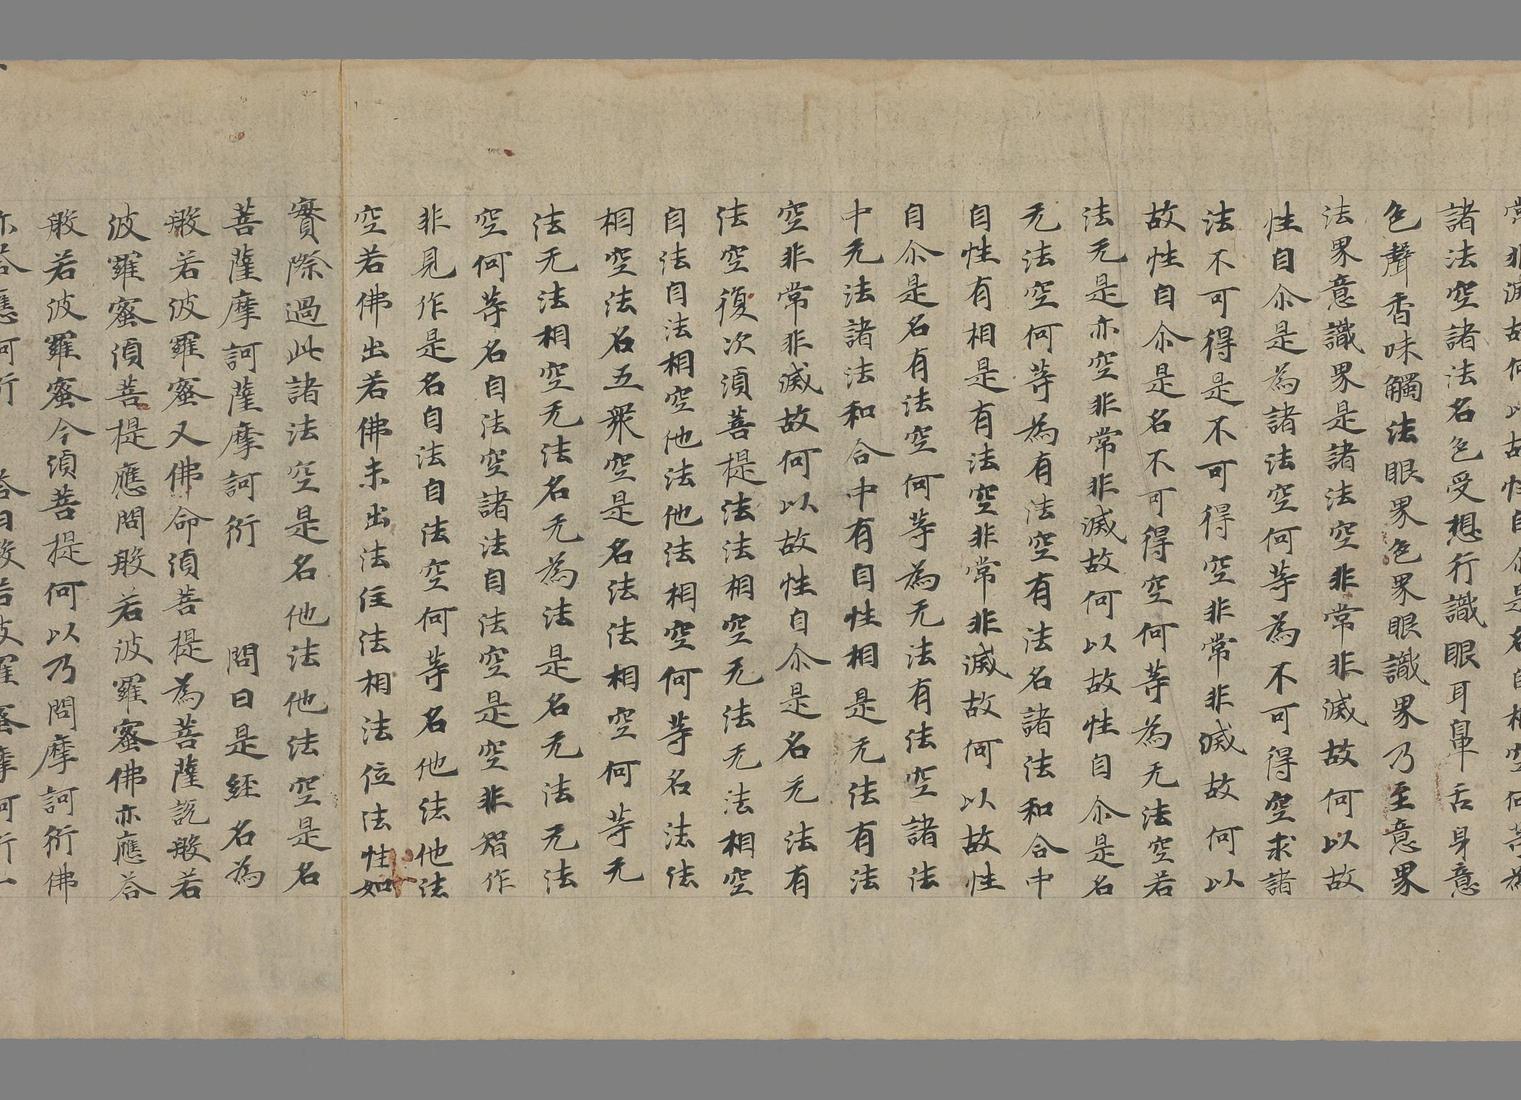 常非滅故何以故性自尒是名自相空何等為
諸法空諸法名色受想行識眼耳鼻舌身意
色聲香味觸法眼界色界眼識界乃至意界
法界意識界是諸法空非常非滅故何以故
性自尒是為諸法空何等為不可得空求諸
法不可得是不可得空非常非滅故何以
故性自尒是名不可得空何等為无法空若
法无是亦空非常非滅故何以故性自尒是名
无法空何等為有法空有法名諸法和合中
自性有相是有法空非常非滅故何以故性
自尒是名有法空何等為无法有法空諸法
中无法諸法和合中有自性相是无法有法
空非常非滅故何以故性自尒是名无法有
法空復次湏菩提法法相空无法无法相空
自法自法相空他法他法相空何等名法法
相空法名五衆空是名法法相空何等无
法无法相空无法名无為法是名无法无法
空何等名自法空諸法自法空是空非智作
非見作是名自法自法空何等名他法他法
空若佛出若佛未出法住法相法位法性如
實際過此諸法空是名他法他法空是名
菩薩摩訶薩摩訶衍　問曰是經名為
般若波羅蜜又佛命湏菩提為菩薩說般若
波羅蜜湏菩提應問般若波羅蜜佛亦應荅
般若波羅蜜今湏菩提何以乃問摩訶衍佛
亦荅應訶衍　荅曰般若波羅蜜摩訶衍一